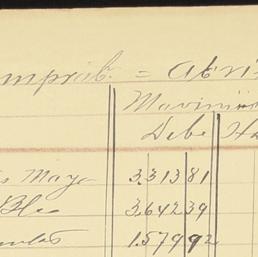 Comprob. = Abri
Movimien
Debe Ha
Mayo 3.313 81
3.642 39
1.579 92